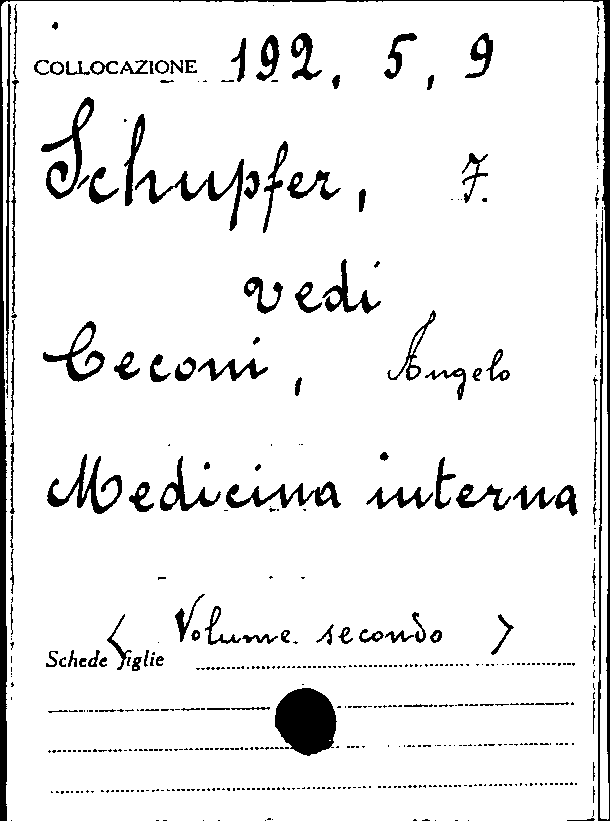 COLLOCAZIONE 192, 5, 9
Schupfer, F.
vedi
Ceconi, Angelo
Medicina interna
< Volume secondo >
Schede figlie